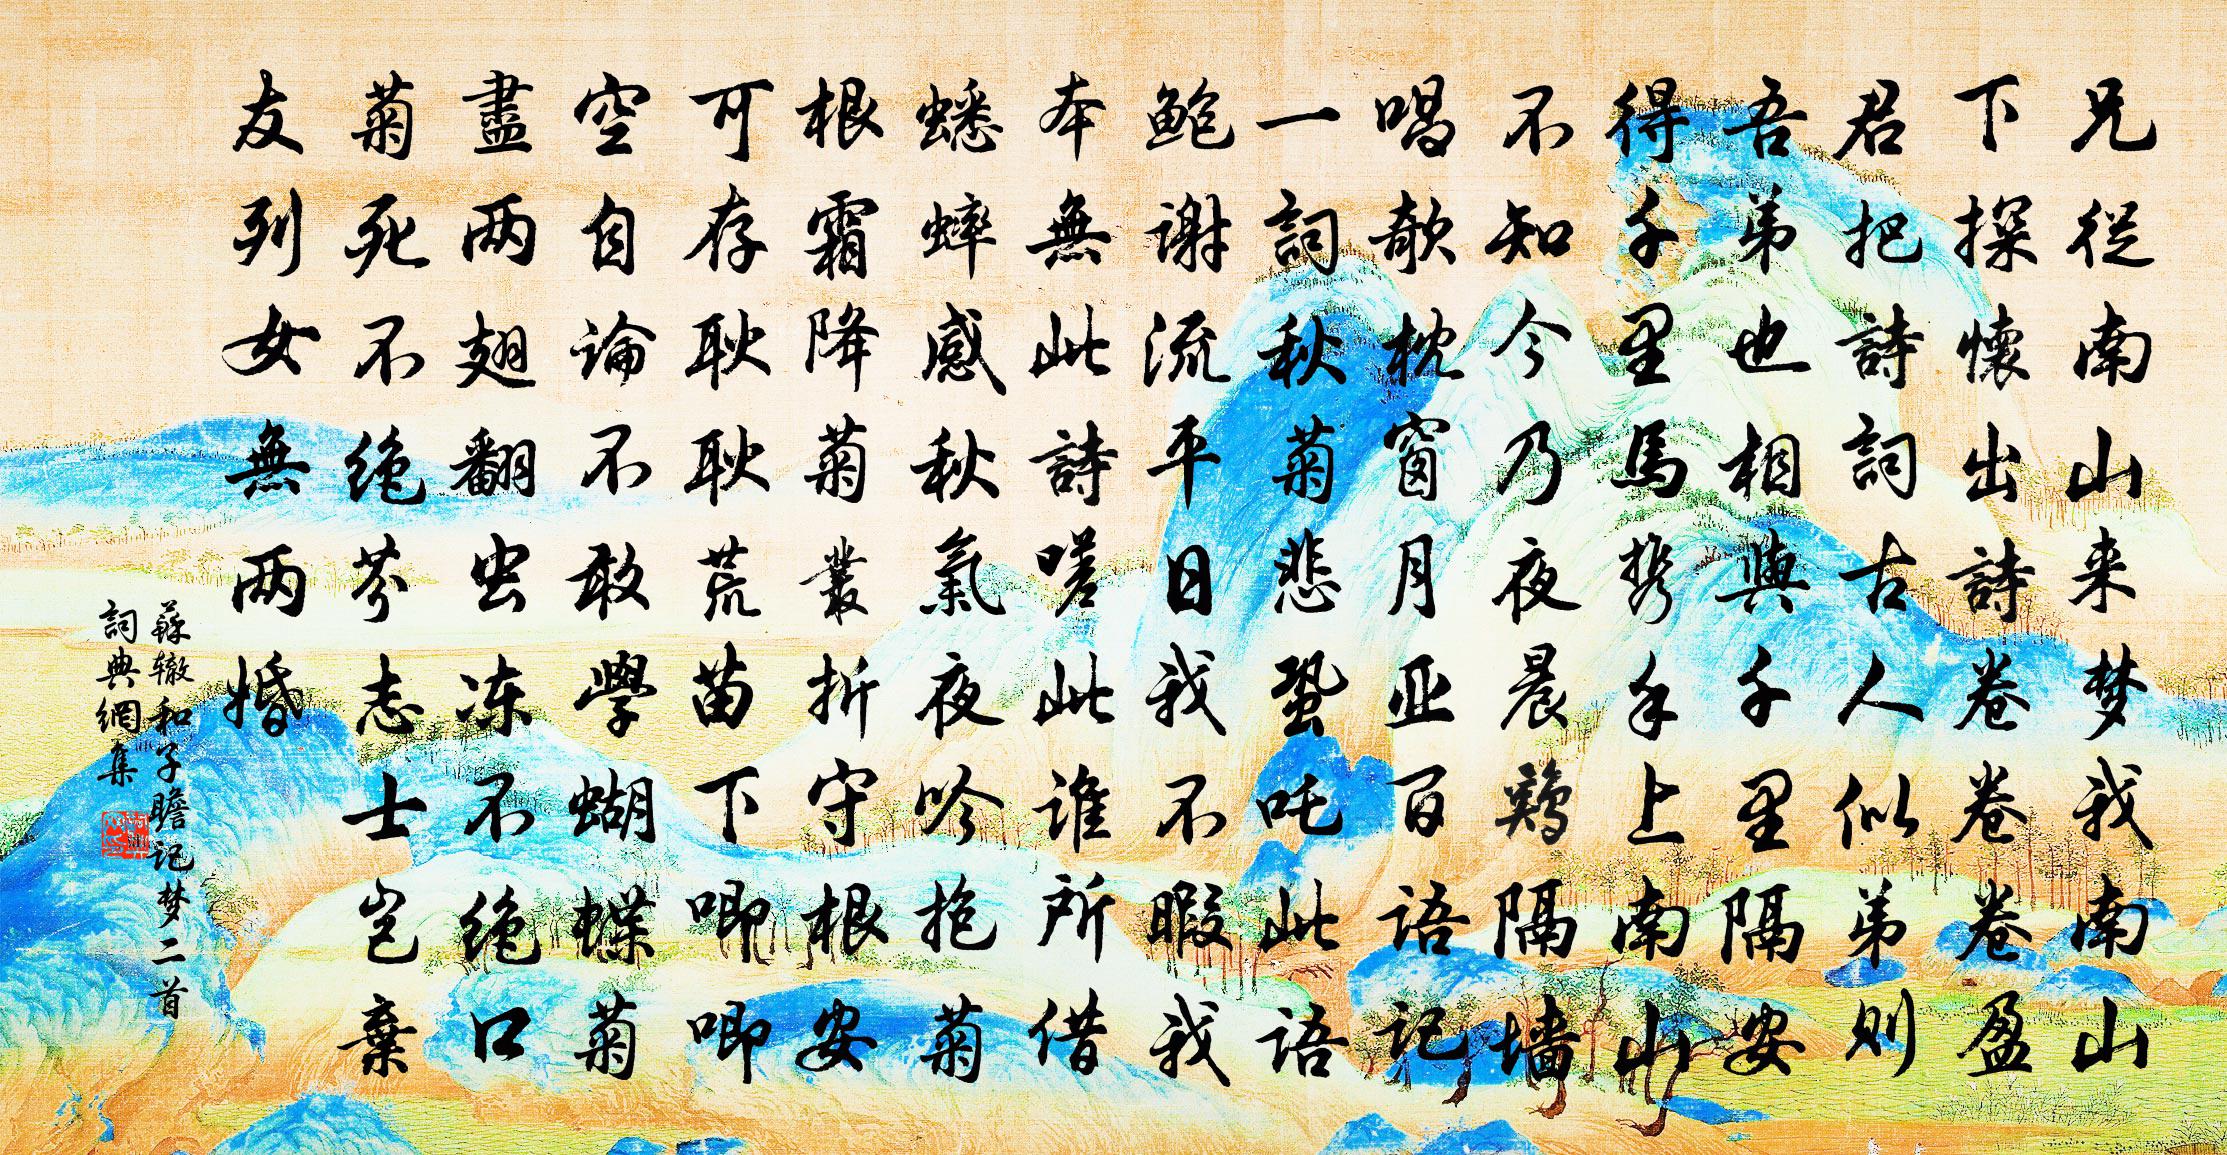 兄從南山来梦我南山
下探懷出詩卷卷卷盈
君把詩詞古人似弟则
吾弟也相與千里隔安
得千里馬携手上南山
不知今乃夜晨鶏隔墙
唱欹枕窗月亚百语记
一詞秋菊悲蛩吒此语
鲍谢流平日我不暇我
本無此詩嗟此谁所借
蟋蟀感秋氣夜吟抱菊
根霜降菊叢折守根安
可存耿耿荒苗下唧唧
空自论不敢學蝴蝶菊
盡两翅翻虫冻不绝口
菊死不绝芬志士岂棄
友列女無两婚
蘇辙和子瞻记梦二首
詞典網集